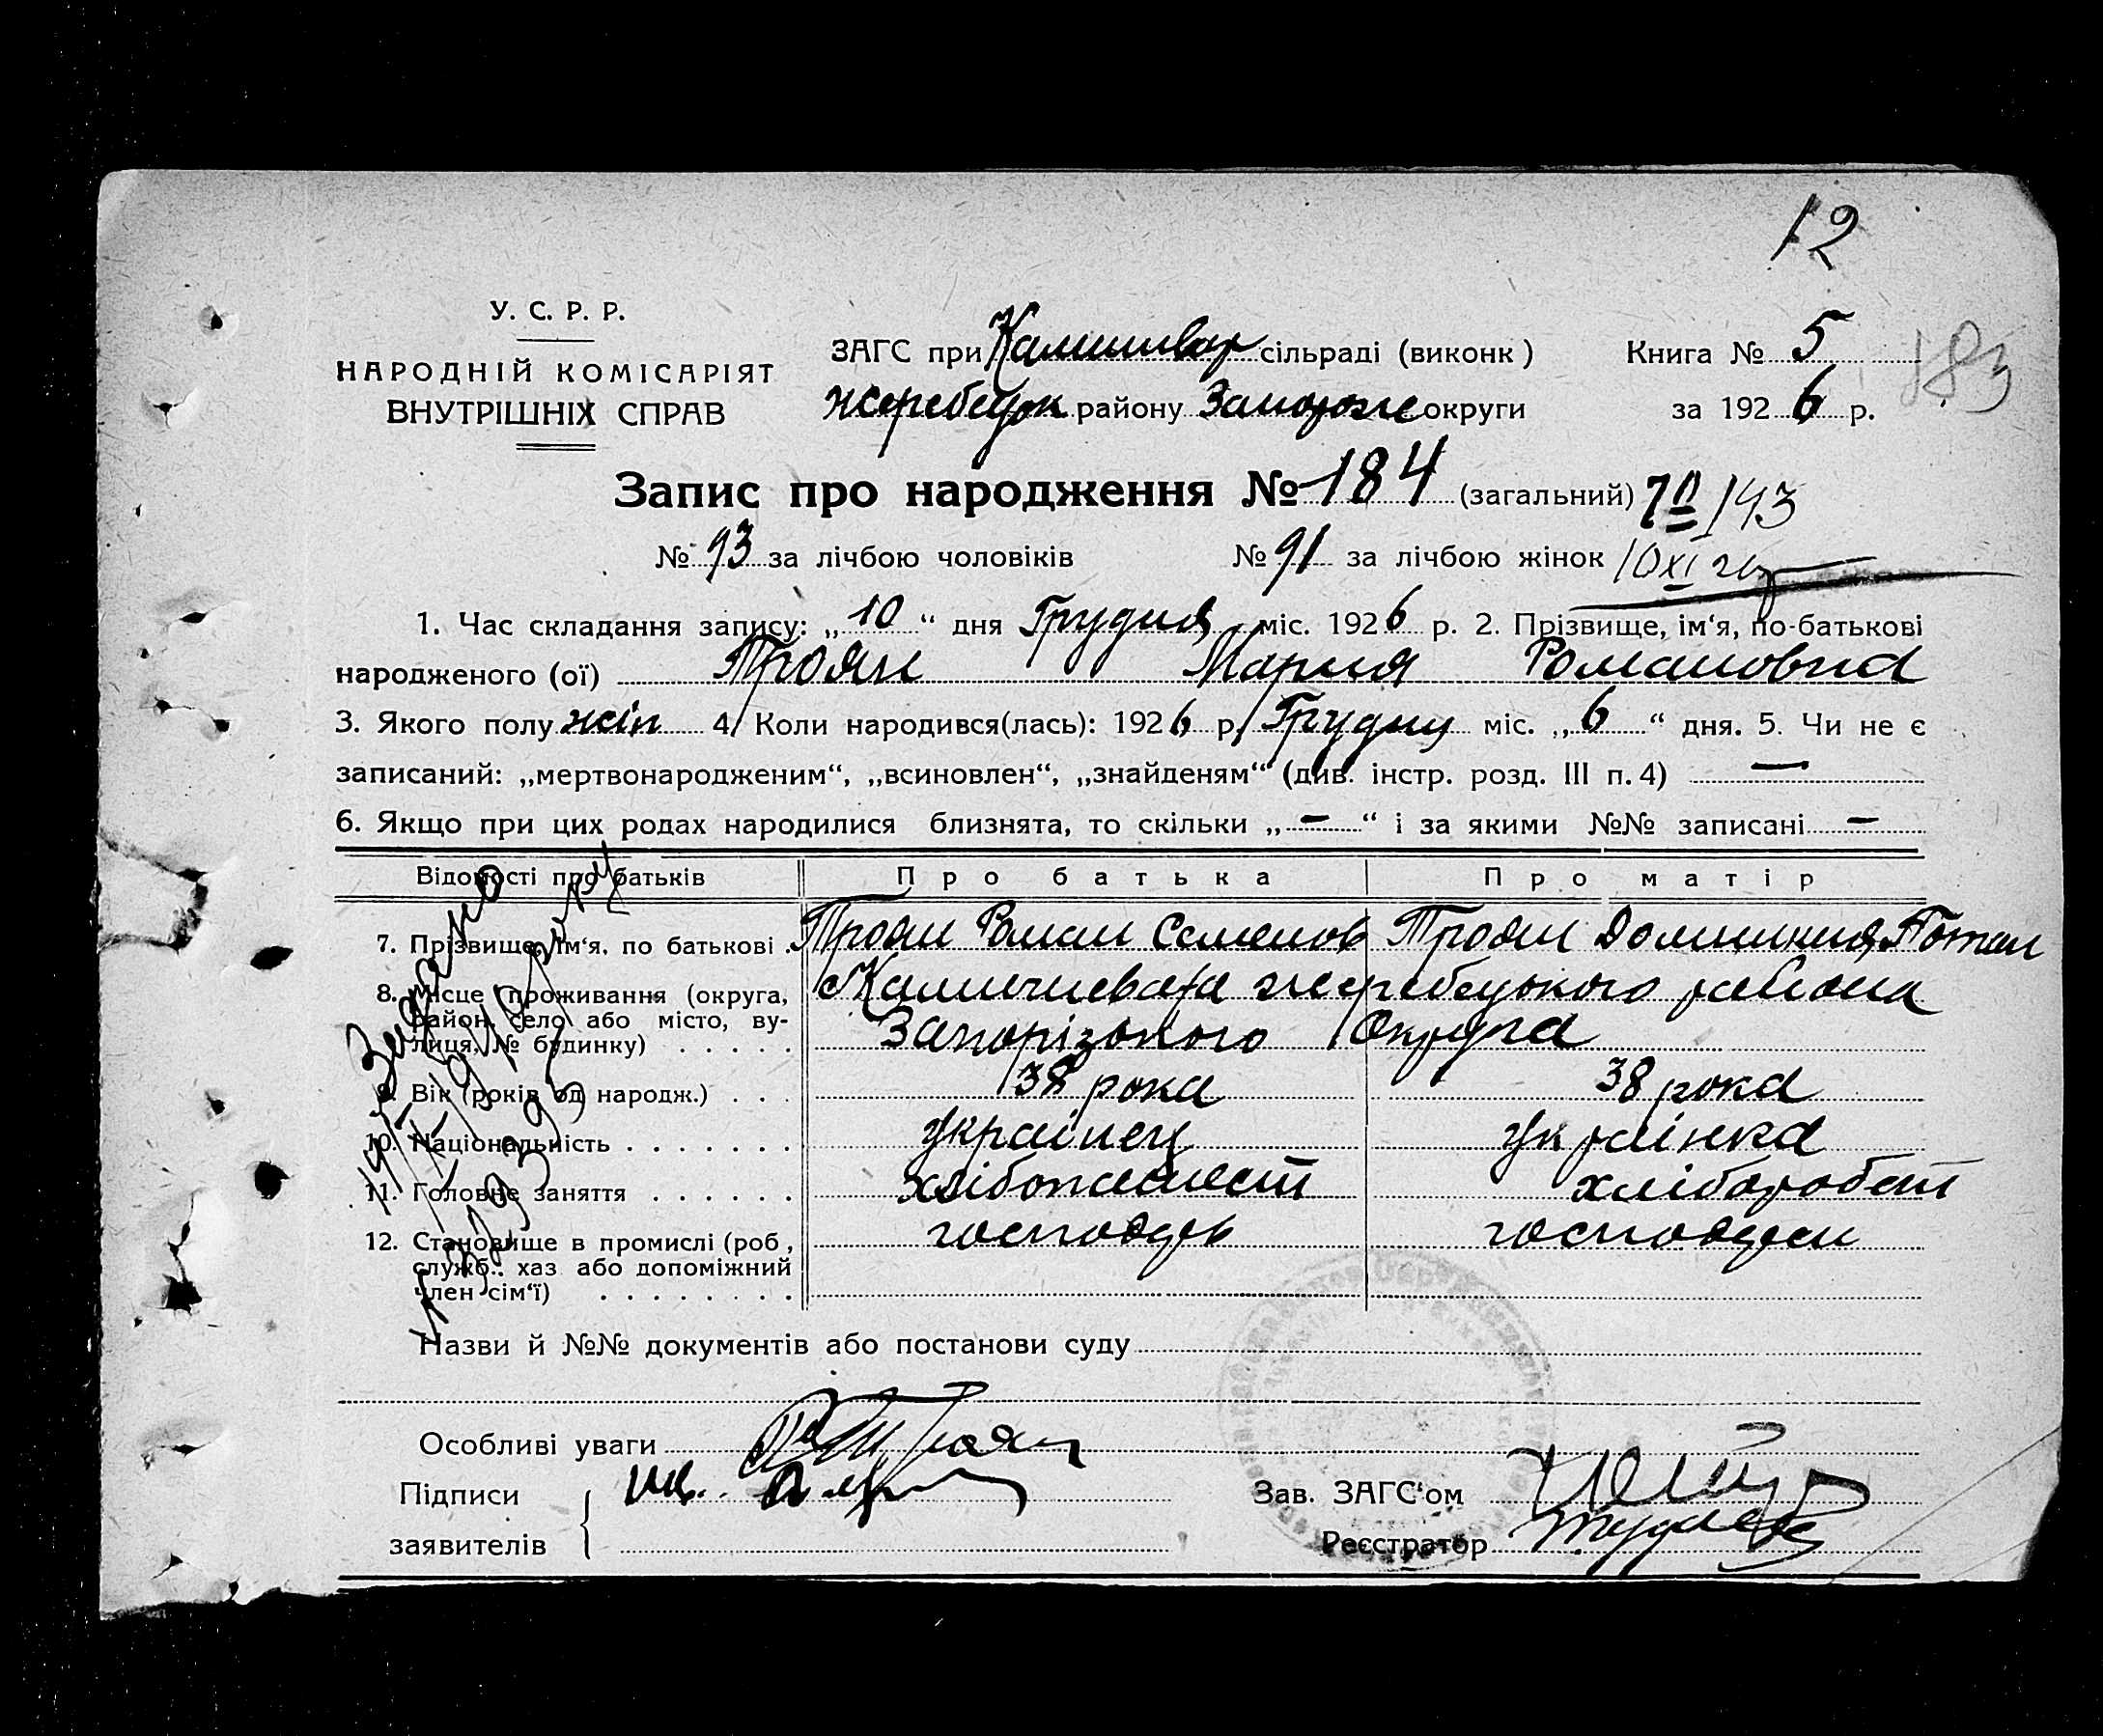 12
У. С. Р. Р.
НАРОДНІЙ КОМІСАРІЯТ
ВНУТРІШНІХ СПРАВ
ЗАГС при сільраді (виконк)
Жеребецьк району Запоріж округи
Книга № 5
за 1926 р.
183
Запис про народження № 184 (загальний)
№ 93 за лічбою чоловіків № 91 за лічбою жінок
1. Час складання запису: „10“ дня Грудня міс. 1926 р. 2. Прізвище, ім‘я, по-батькові
народженого (ої) Троян Мария Романовна
3. Якого полу жін 4. Коли народився(лась): 1926 р. Грудню міс. „6“ дня. 5. Чи не є
записаний: „мертвонародженим“, „всиновлен“, „знайденям“ (див. інстр. розд. III п. 4) —
6. Якщо при цих родах народилися близнята, то скільки „—“ і за якими №№ записані —
Відомості про батьків Про батька Про матір
7. Прізвище, ім‘я, по батькові . Троян Роман Семенов Троян Домникия Потап
8. Місце проживання (округа, район, село або місто, вулиця, № будинку) . . . . .
жеребецького района
Запорізького Округа
9. Вік (років од народж.) . . . 38 рока 38 рока
10. Національність . . . . . . . українец українка
11. Головне заняття . . . . . .
12. Становище в промислі (роб, служб., хаз або допоміжний член сім‘ї) . . . . . . . .
господар
Видано
Назви й №№ документів або постанови суду
Особливі уваги
Підписи
заявителів
Зав. ЗАГС‘ом
Реєстратор